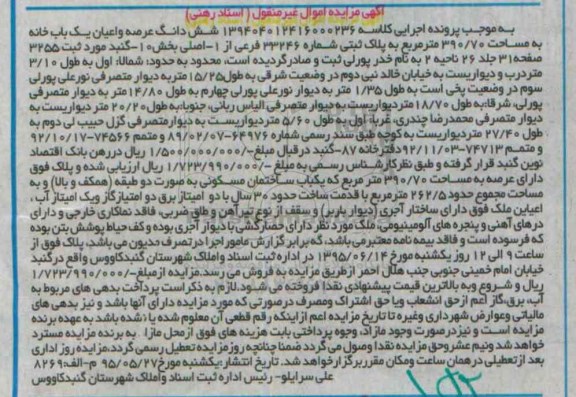 آگهی مزایده اموال غیرمنقول ( اسناد رهنی)
به موجب پرونده اجرایی کلاسه ۱۳۹۴۰۴۰۱۲۴۱۶۰۰۰۲۳۶ شش دانگ عرصه واعیان یک باب خانه
به مساحت ۳۹۰/۷۰ مترمربع به پلاک ثبتی شماره ۳۳۲۴۶ فرعی از ۱-اصلی بخش۱۰-گنبد مورد ثبت ۳۲۵۵
صفحه۳۱ جلد ۲۶ ناحیه ۲ به نام خدر پورلی ثبت و صادرگردیده است، محدود به حدود: شمالا: اول به طول ۳/۱۰
متردرب و دیواریست به خیابان خالد نبی دوم در وضعیت شرقی به طول۱۵/۲۵ متربه دیوار متصرفی نورعلی پورلی
سوم در وضعیت یخی است به طول ۱/۳۵ متر به دیوار نورعلی پورلی چهارم به طول ۱۴/۸۰ متر به دیوار متصرفی
پورلی، شرقا:به طول ۱۸/۷۰مترد‌یواریست به دیوار متصرفی الیاس ربانی، جنوبا:به طول ۲۰/۲۰ متر دیواریست به
دیوار متصرفی محمدرضا چندری، غربا: اول به طول ۵/۶۰ متر دیوارست به دیوارمتصرفی گزل حبیب لی دوم به
طول ۲۷/۴۰ متردیواریست به کوچه طبق سند رسمی شماره ۶۴۹۷۶-۸۹/۰۲/۰۷ و متمم ۷۴۵۶۶-۹۲/۱۰/۱۷
و متمم ۷۴۷۱۳-۹۲/۱۱/۰۳دفترخانه ۸۷-گنبد درقبال مبلغ-/۱/۵۰۰/۰۰۰/۰۰۰ ریال دررهن بانک اقتصاد
نوین گنبد قرار گرفته و طبق نظرکارشناس رسمی به مبلغ -/۱/۷۲۳/۹۹۰/۰۰۰ ریال ارزیابی شده و پلاک فوق
دارای عرصه به مساحت ۳۹۰/۷۰ متر مربع که یکباب ساختمان مسکونی به صورت دو طبقه (همکف و بالا) و به
مساحت مجموع حدود ۲۶۲/۵ مترمربع با قدمت ساخت حدود ۳۰ سال با دو امتیاز برق دو امتیازگاز ویک امتیاز آب ،
اعیاین ملک فوق دارای ساختار آجری (دیوار باربر) و سقف از نوع تیرآهن و طاق ضربی، فاقد نماکاری خارجی و دارای
درهای آهنی و پنجره های آلومینیومی، ملک مورد نظر دارای حصارکشی با دیوار آجری بوده و کف حیاط پوشش بتن بوده
که فرسوده است و فاقد بیمه نامه معتبر می باشد، که برابر گزارش مامور اجرا درتصرف مدیون می باشد، پلاک فوق از
ساعت ۹ الی ۱۲ روز یکشنبه مورخ ۱۳۹۵/۰۶/۱۴ در اداره ثبت اسناد واملاک شهرستان گنبدکاووس واقع درگنبد
خیابان امام خمینی جنوبی جنب هلال احمر ازطریق مزایده به فروش می رسد.مزایده ازمبلغ-/۱/۷۲۳/۹۹۰/۰۰۰
ریال و شروع وبه بالاترین قیمت پیشنهادی نقدا فروخته می شود.لازم به ذکراست پرداخت بدهی های مربوط به
آب، برق، گاز اعم ازحق انشعاب ویا حق اشتراک ومصرف درصورتی که مورد مزایده دارای آنها باشد و نیز بدهی های
مالیاتی وعوارض شهرداری وغیره تا تاریخ مزایده اعم از اینکه رقم قطعی آن معلوم شده یا نشده باشد به عهده برنده
مزایده است و نیزدرصورت وجود مازاد، وجوه پرداختی بابت هزینه های فوق ازمحل مازا به برنده مزایده مسترد
خواهد شد ونیم عشروحق مزایده نقدا وصول می گردد ضمنا چنانچه روزمزایده تعطیل رسمی گردد،مزایده روز اداری
بعد ازتعطیلی درهمان ساعت ومکان مقرربرگزارخواهد شد. تاریخ انتشار:یکشنبه مورخ۹۵/۰۵/۲۷ م-الف:۸۲۶۹
علی سرایلو- رئیس اداره ثبت اسناد واملاک شهرستان گنبدکاووس